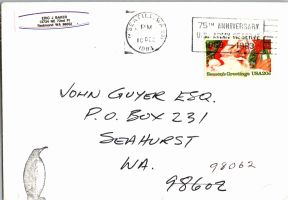 ERIC J. BAKER
Redmond WA 98052
SEATTLE, WA
PM
10 DEC
1983
75TH ANNIVERSARY
U.S. ARMY RESERVE
1983
Season's Greetings USA 20c
JOHN GUYER ESQ.
P.O. BOX 231
SEAHURST
WA. 98062
98602